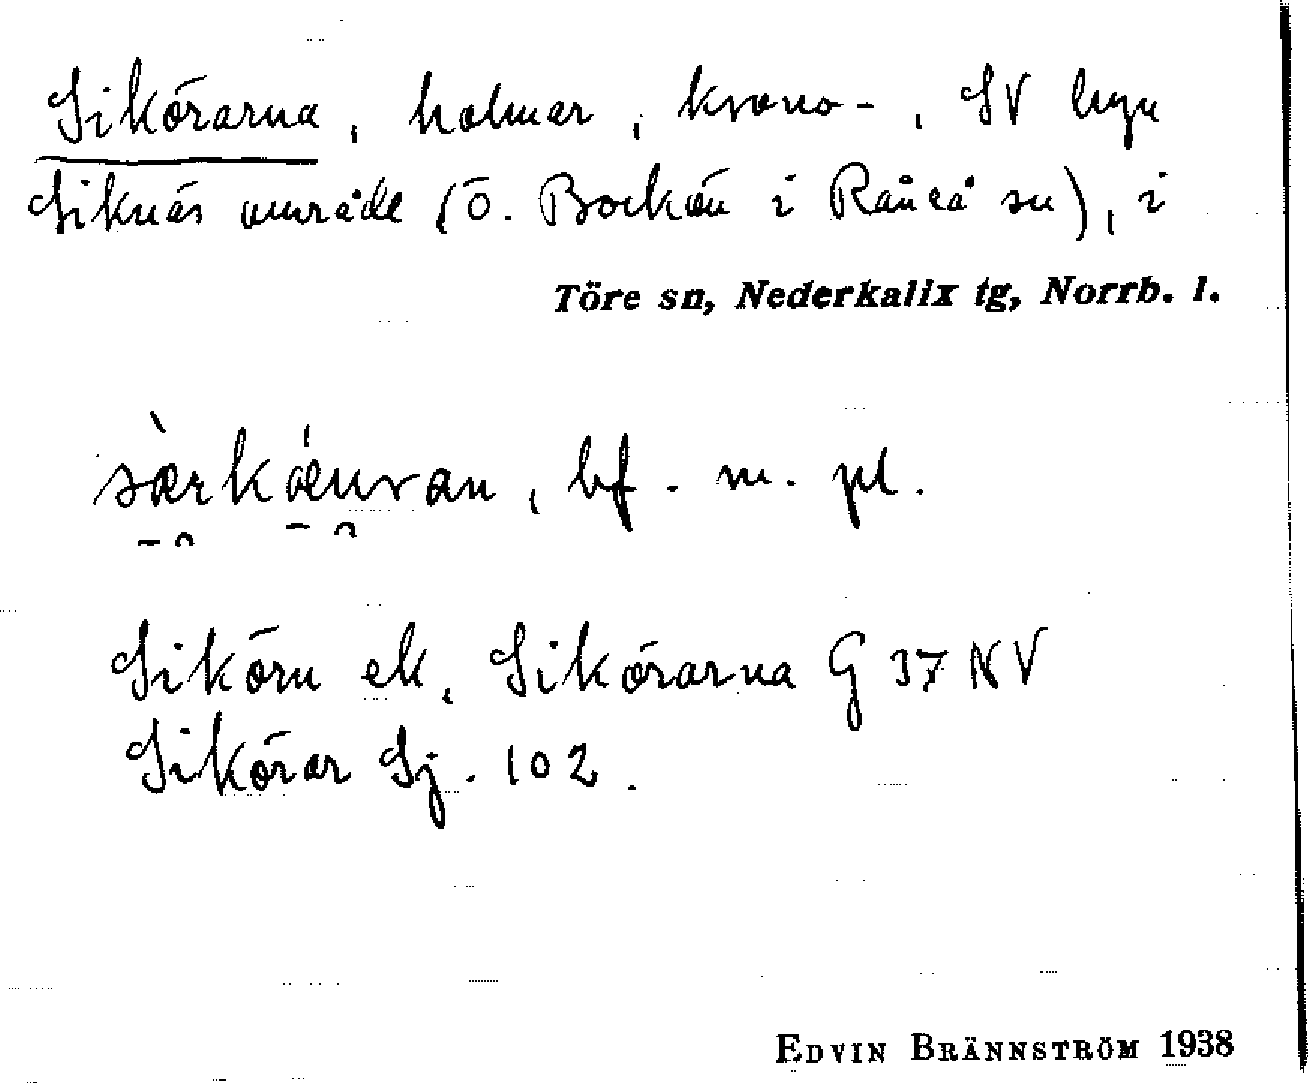 Sikörarna, holmar, krono-, SV
Siknäs område (Ö. Bockön i Råneå sn), i
Töre sn, Nederkalix tg, Norrb. l.
bf. m. pl.
Sikörn ek, Sikörarna G 37 NV
Sikörar Sj. 102.
EDVIN BRÄNNSTRÖM 1938